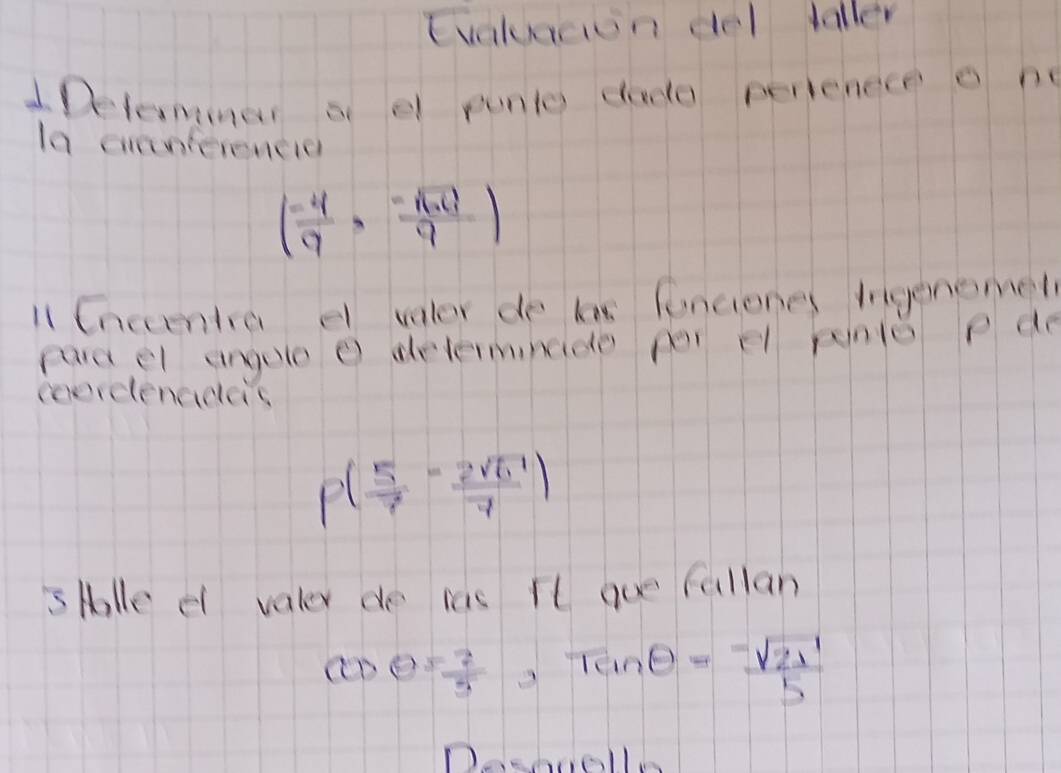 Evaluación del taller
1 Determinar si el punto dado pertenece o no
la circunferencia
(-4/9, -√65/9)
11 Encuentra el valor de las funciones trigonometri
para el angulo θ determinado por el punto p de
coordenadas
P(5/7 - 2√6/7)
3 Halle el valor de las ft que fallan
cos θ = 2/5, Tan θ = -√21/5
Desarollo